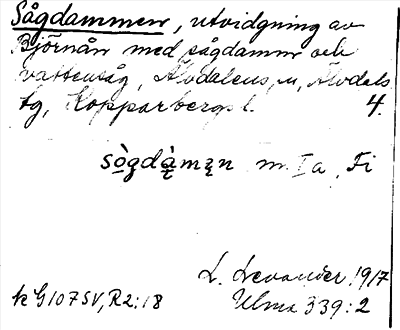 Sågdammen, utvidgning av
Björnån med sågdamm och
vattensåg, Älvdalens, n, Älvdals
tg, Kopparbergs l. 4.
sògdàmən m. Ia, Fi
L. Levander 1917
k G107SV, R2:18 Ulma 339:2